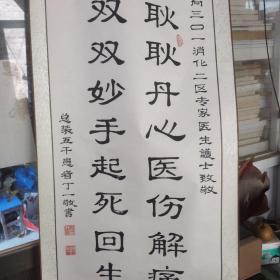 三〇一消化二区专家医生護士致敬
耿耿丹心医伤解痛
双双妙手起死回生
总装五干患者丁一敬書